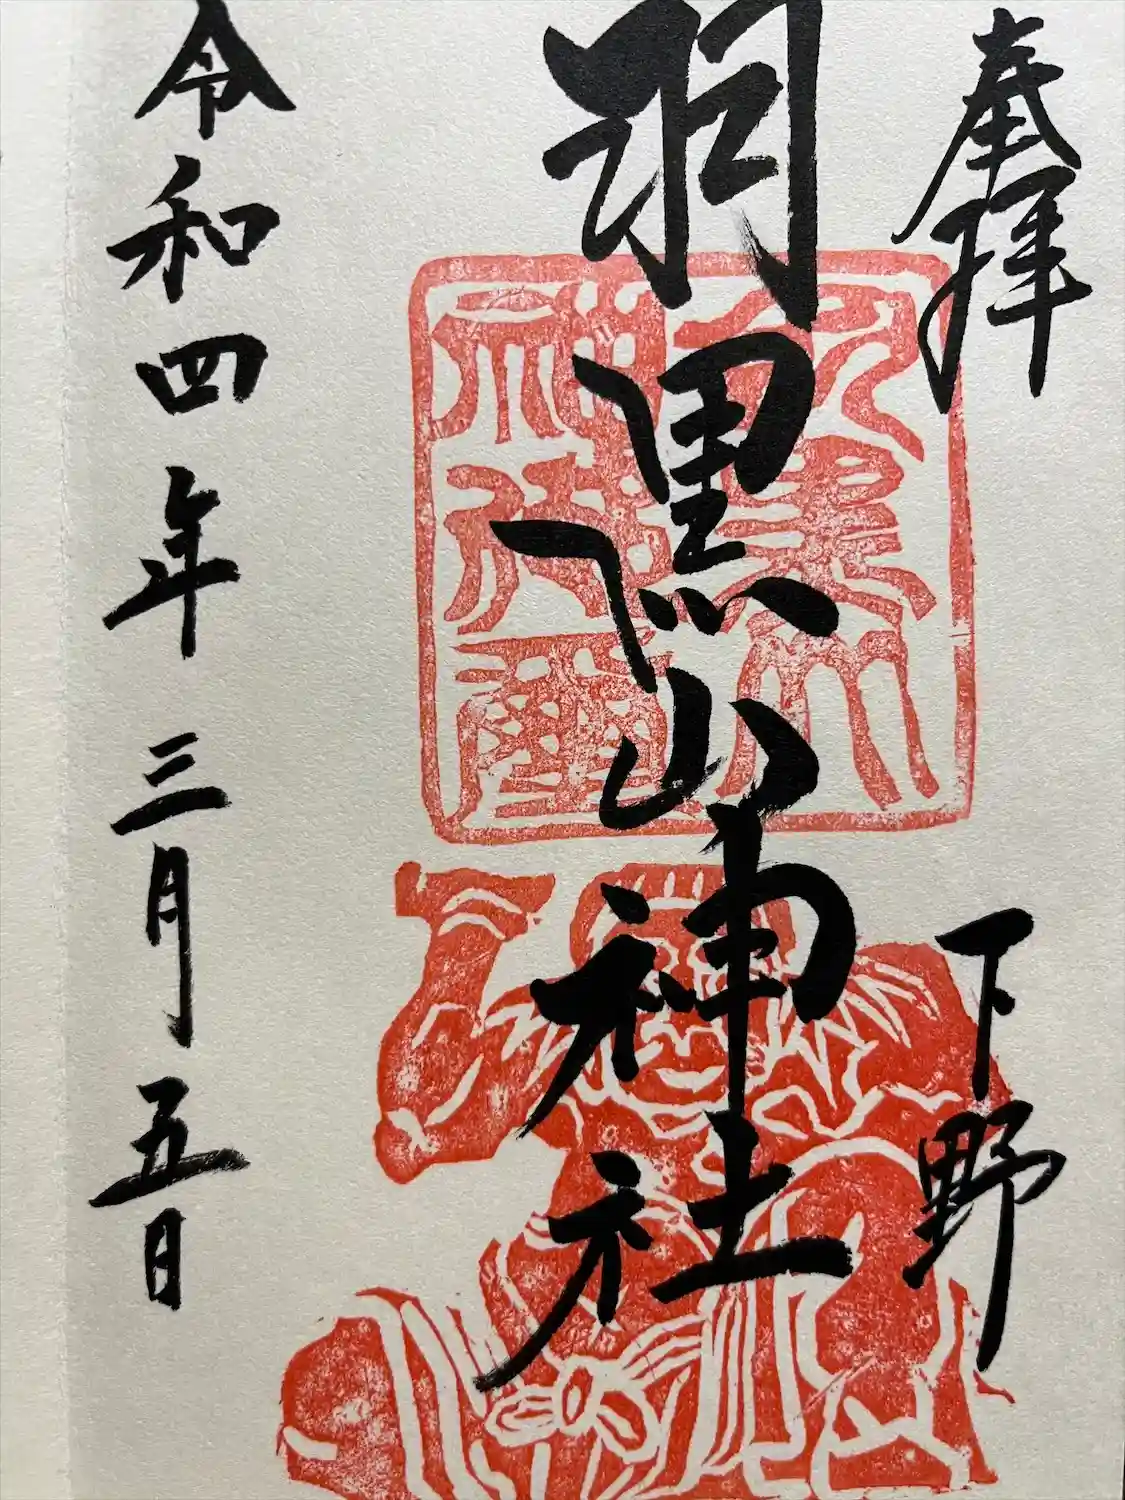 奉拝
下野
羽黒山神社
令和四年三月五日